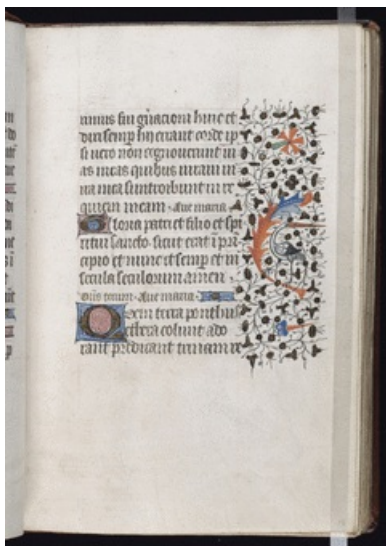 ximus fui gn̄acioni huic et
dixi semp hij errant corde ip
si vero non cognouerunt vi
as meas quibus iuraui in
ira mea si introibunt in re
quiem meam. Aue maria
Gloria patri et filio et spi
ritui sancto. sicut erat ī pri
cipio et nunc et semp et in
secula seculorum amen.
Dn̄s tecum. Aue maria.
Quem terra ponthus
ethera colunt ado
rant predicant trinam re